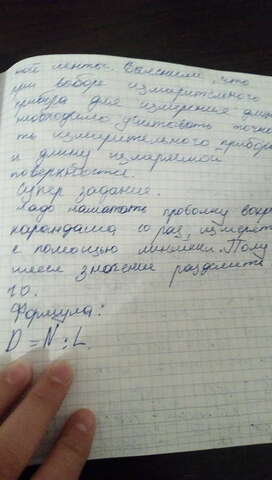 ной ленты. Выяснили, что
при выборе измерительного
прибора для измерения длины
необходимо учитовать точнос
ть измерительного прибора
и длину измеряемой
поверхности.
Супер задание.
Надо намотать проволку вокр
карандаша 10 раз, измерет
с помощью линейки. Полу
значение разделить
10.
Формула:
D = N : L